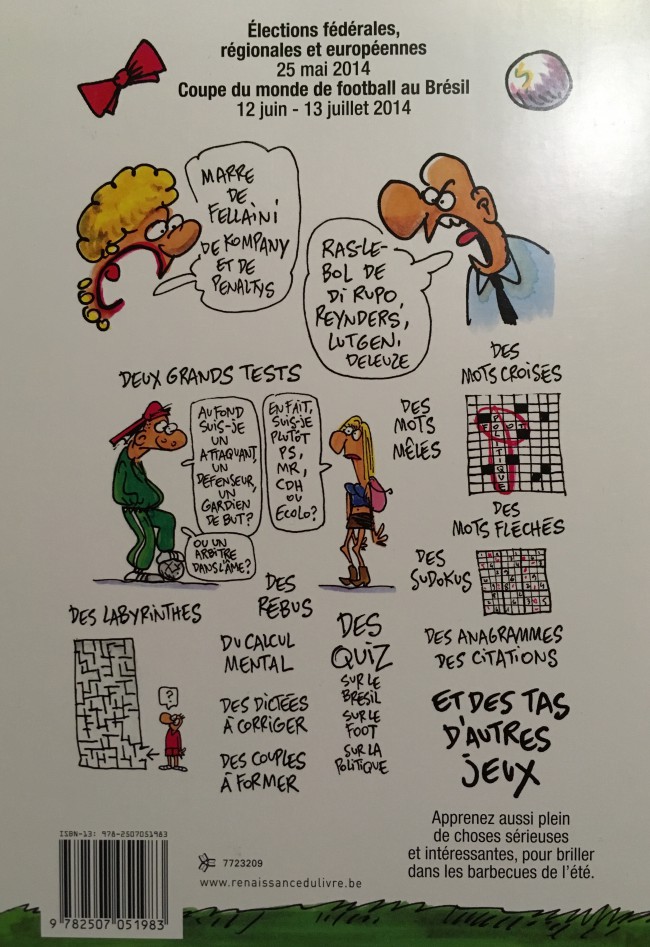 Élections fédérales,
régionales et européennes
25 mai 2014
Coupe du monde de football au Brésil
12 juin - 13 juillet 2014
MARRE
DE
FELLAINI
DE KOMPANY
ET DE
PENALTYS
RAS-LE-
BOL DE
DI RUPO,
REYNDERS,
LUTGEN,
DELEUZE
DEUX GRANDS TESTS
AU FOND
SUIS-JE
UN
ATTAQUANT,
UN
DÉFENSEUR,
UN
GARDIEN
DE BUT?
OU UN
ARBITRE
DANS L'ÂME?
EN FAIT,
SUIS-JE
PLUTÔT
PS,
MR,
CDH
OU
ECOLO?
DES
MOTS CROISÉS
DES
MOTS
MÊLÉS
FOOT
POLITIQUE
DES
MOTS FLÉCHÉS
DES
SUDOKUS
DES LABYRINTHES
?
DES
RÉBUS
DU CALCUL
MENTAL
DES DICTÉES
À CORRIGER
DES COUPLES
À FORMER
DES
QUIZ
SUR LE
BRÉSIL
SUR LE
FOOT
SUR LA
POLITIQUE
DES ANAGRAMMES
DES CITATIONS
ET DES TAS
D'AUTRES
JEUX
Apprenez aussi plein
de choses sérieuses
et intéressantes, pour briller
dans les barbecues de l'été.
ISBN-13: 978-2507051983
9 782507 051983
7723209
www.renaissancedulivre.be